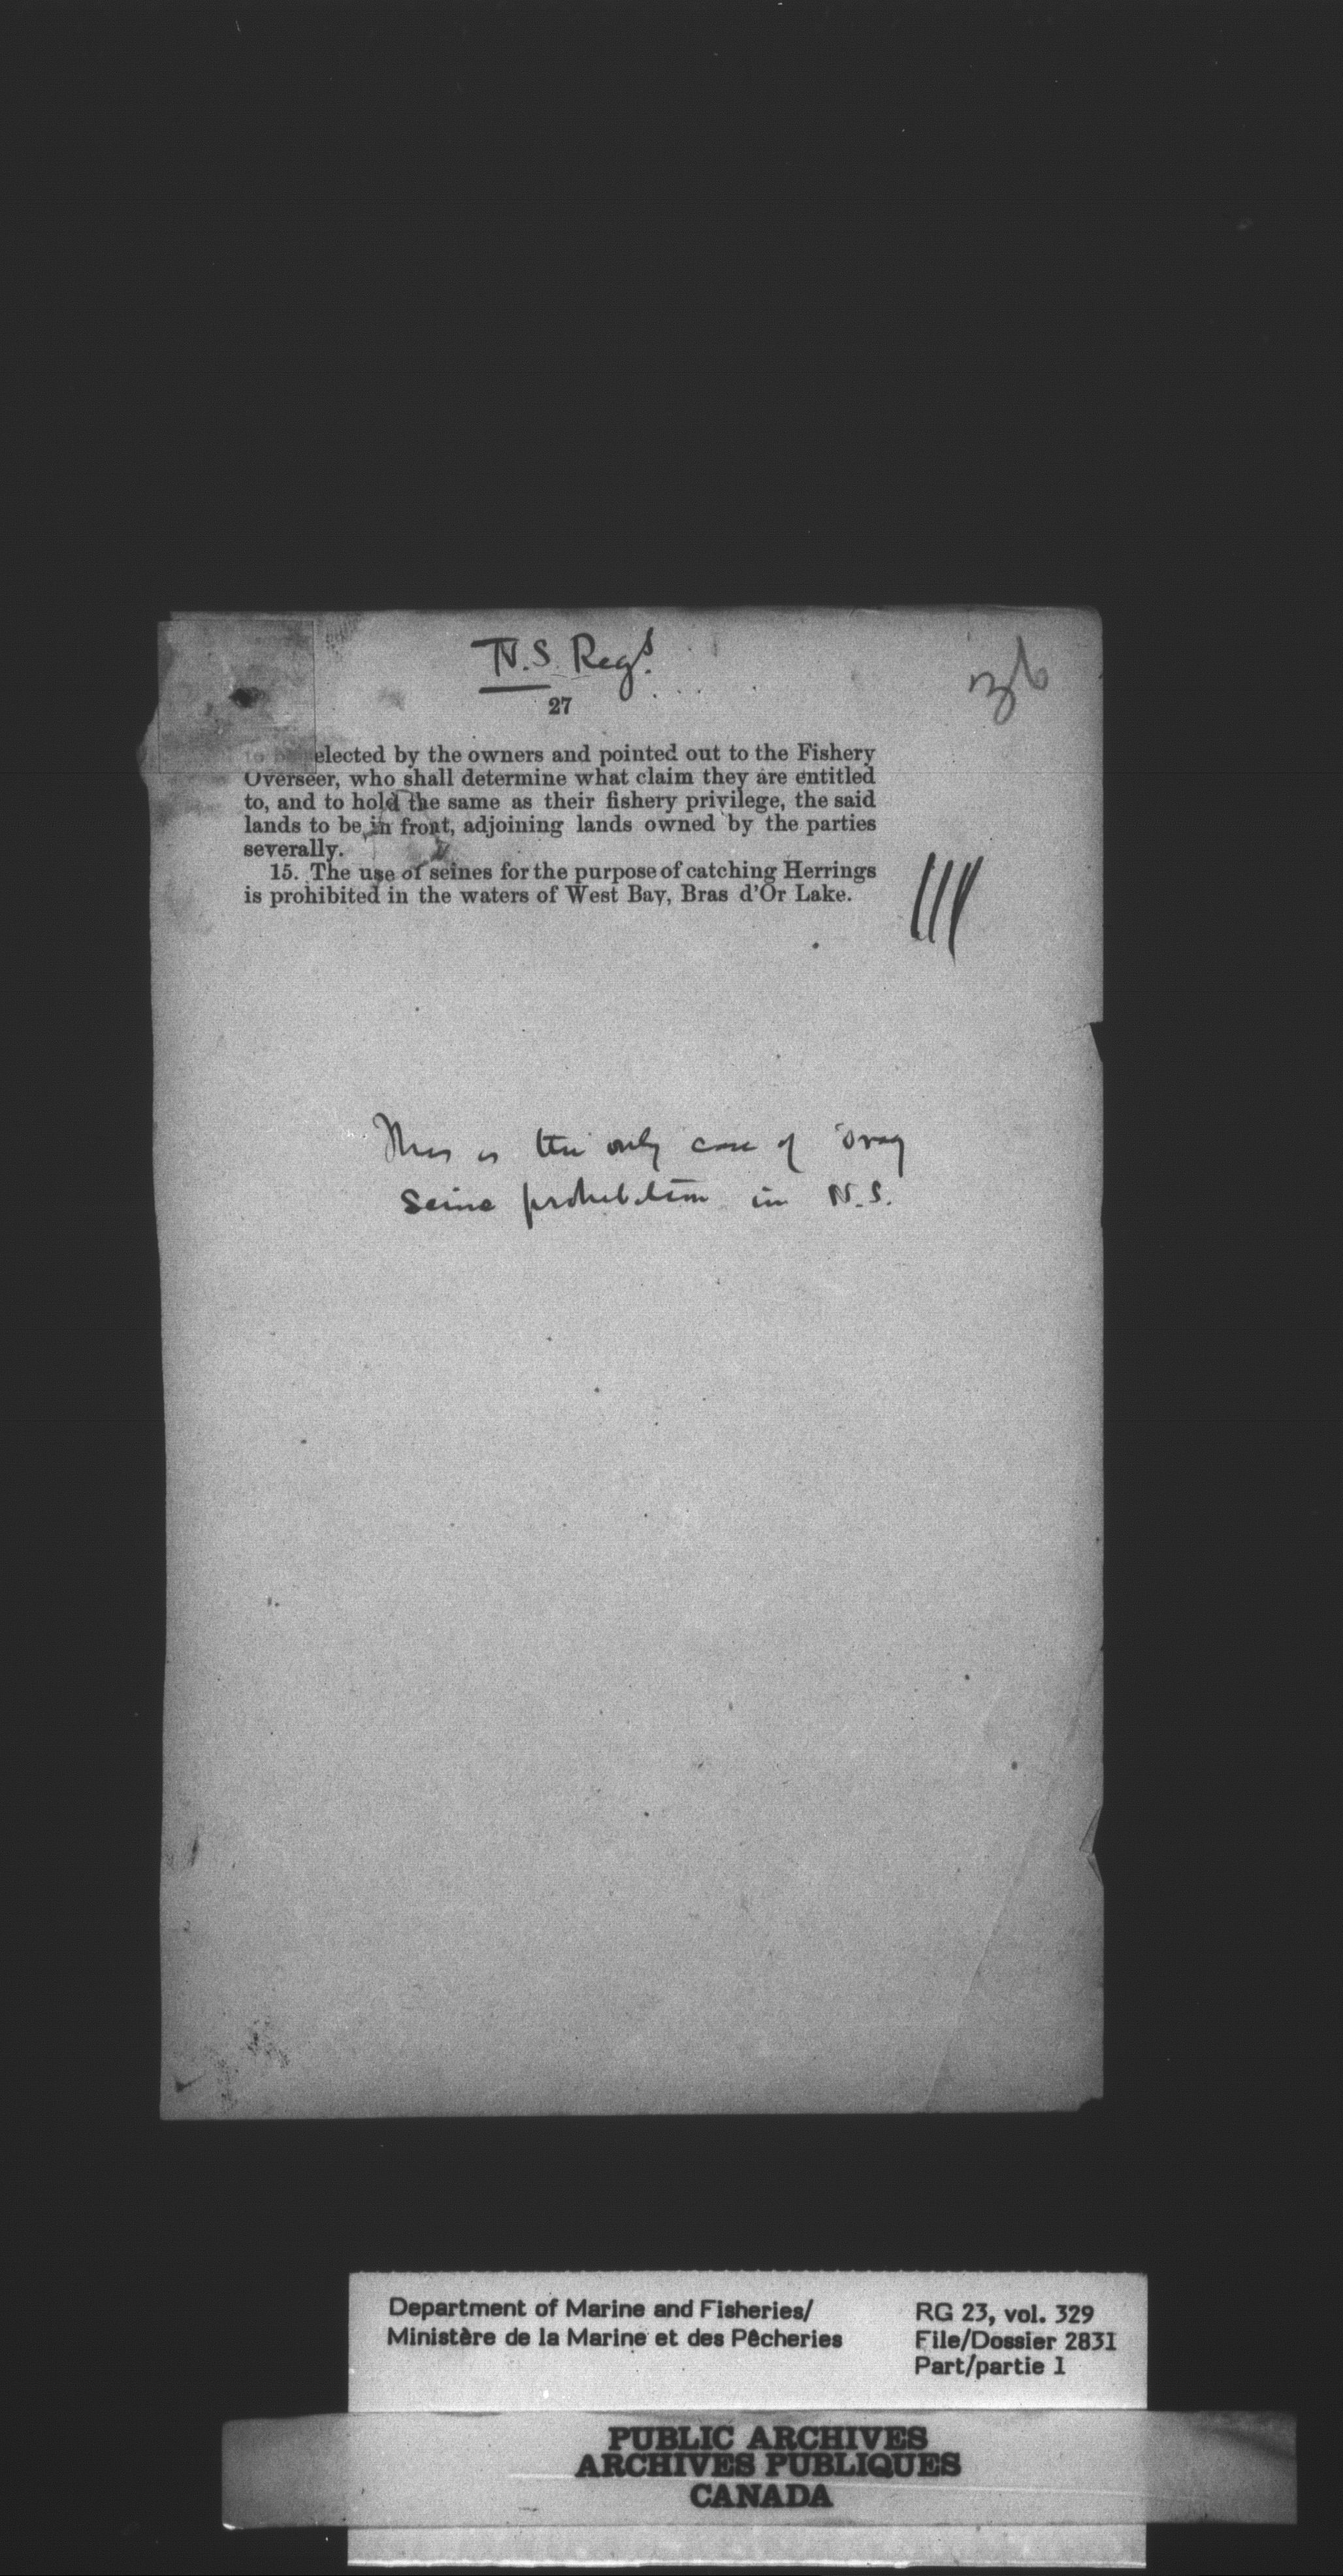 N.S. Regs.
36
27
to be selected by the owners and pointed out to the Fishery
Overseer, who shall determine what claim they are entitled
to, and to hold the same as their fishery privilege, the said
lands to be in front, adjoining lands owned by the parties
severally.
15. The use of seines for the purpose of catching Herrings
is prohibited in the waters of West Bay, Bras d'Or Lake.
This is the only case of Drag
Seine prohibition in N.S.
Department of Marine and Fisheries/
Ministère de la Marine et des Pêcheries
RG 23, vol. 329
File/Dossier 2831
Part/partie 1
PUBLIC ARCHIVES
ARCHIVES PUBLIQUES
CANADA